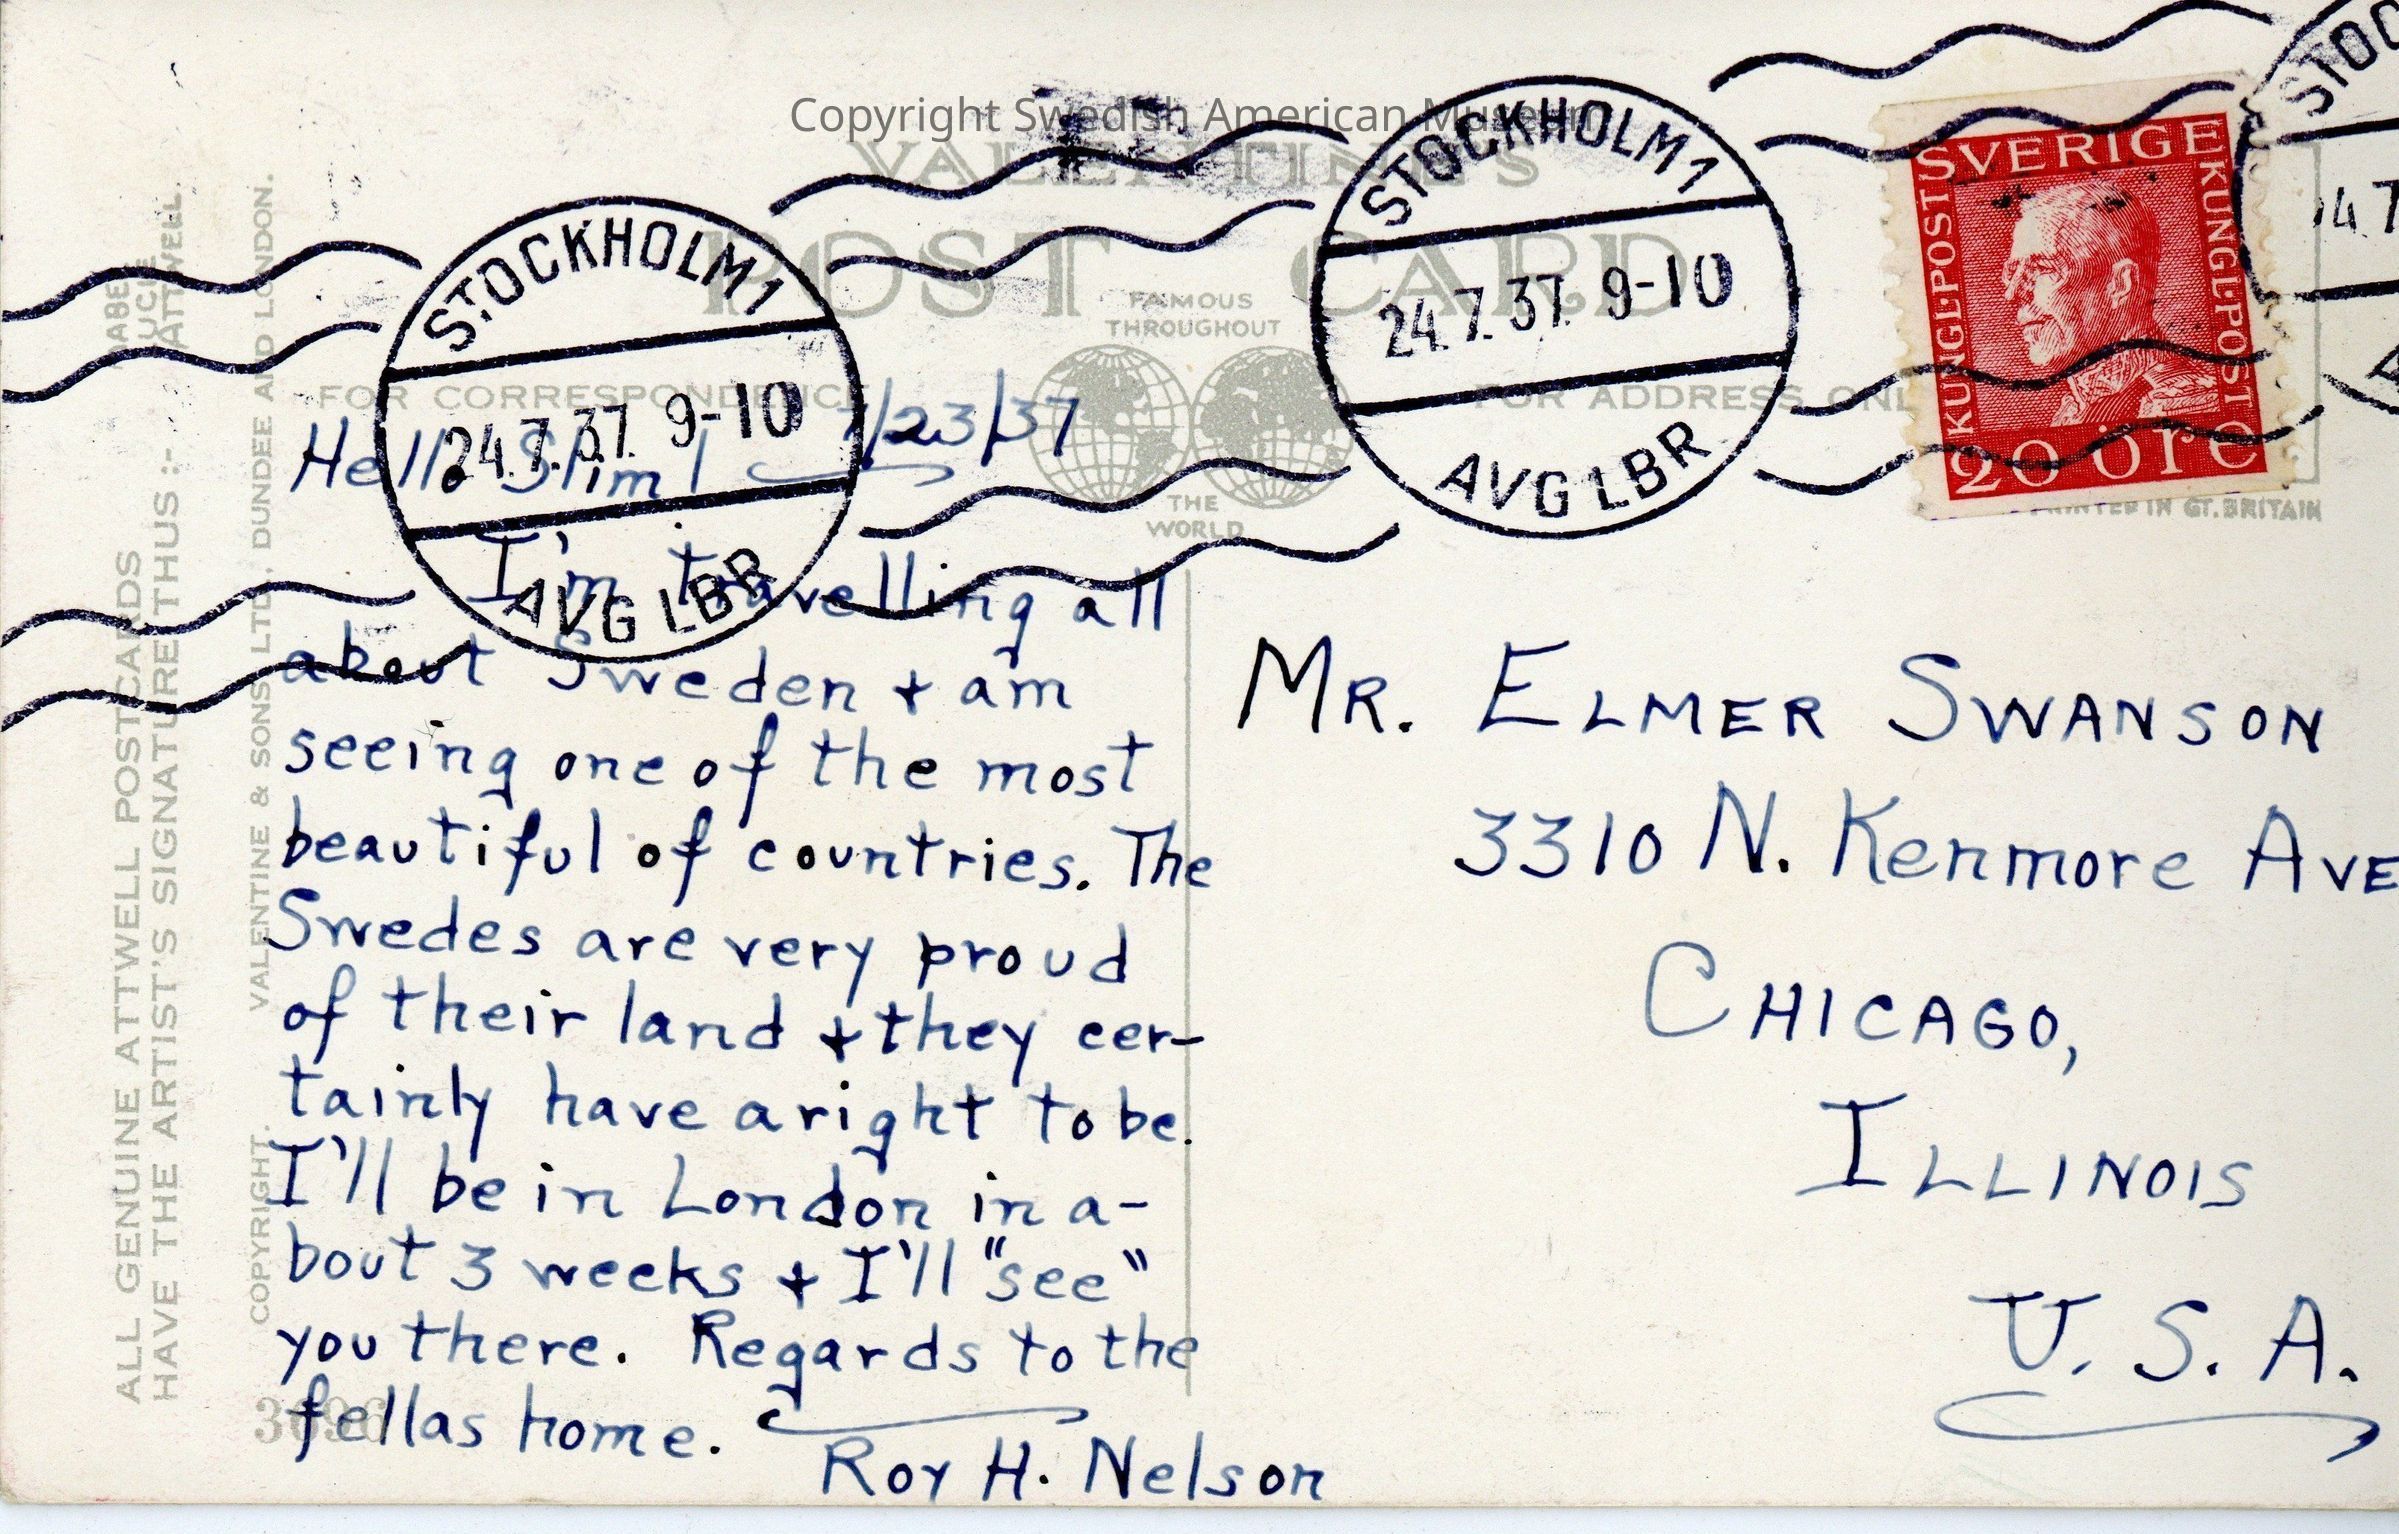 Copyright Swedish American Museum
VALENTINE'S
POST CARD
FAMOUS
THROUGHOUT
THE
WORLD
FOR CORRESPONDENCE
FOR ADDRESS ONL
PRINTED IN GT. BRITAIN
STOCKHOLM 1
24.7.37. 9-10
AVG LBR
STOCKHOLM 1
24.7.37. 9-10
AVG LBR
STOC
24.7
SVERIGE
KUNGL·POST
KUNGL·POST
20 ÖRE
ALL GENUINE ATTWELL POSTCARDS
HAVE THE ARTIST'S SIGNATURE THUS :-
MABEL
LUCIE
ATTWELL.
COPYRIGHT. VALENTINE & SONS LTD. DUNDEE AND LONDON.
7/23/37
Hello Slim!
I'm travelling all
about Sweden + am
seeing one of the most
beautiful of countries. The
Swedes are very proud
of their land + they cer-
tainly have a right to be.
I'll be in London in a-
bout 3 weeks + I'll "see"
you there. Regards to the
fellas home.
Roy H. Nelson
MR. ELMER SWANSON
3310 N. Kenmore AVE
CHICAGO,
ILLINOIS
U. S. A.